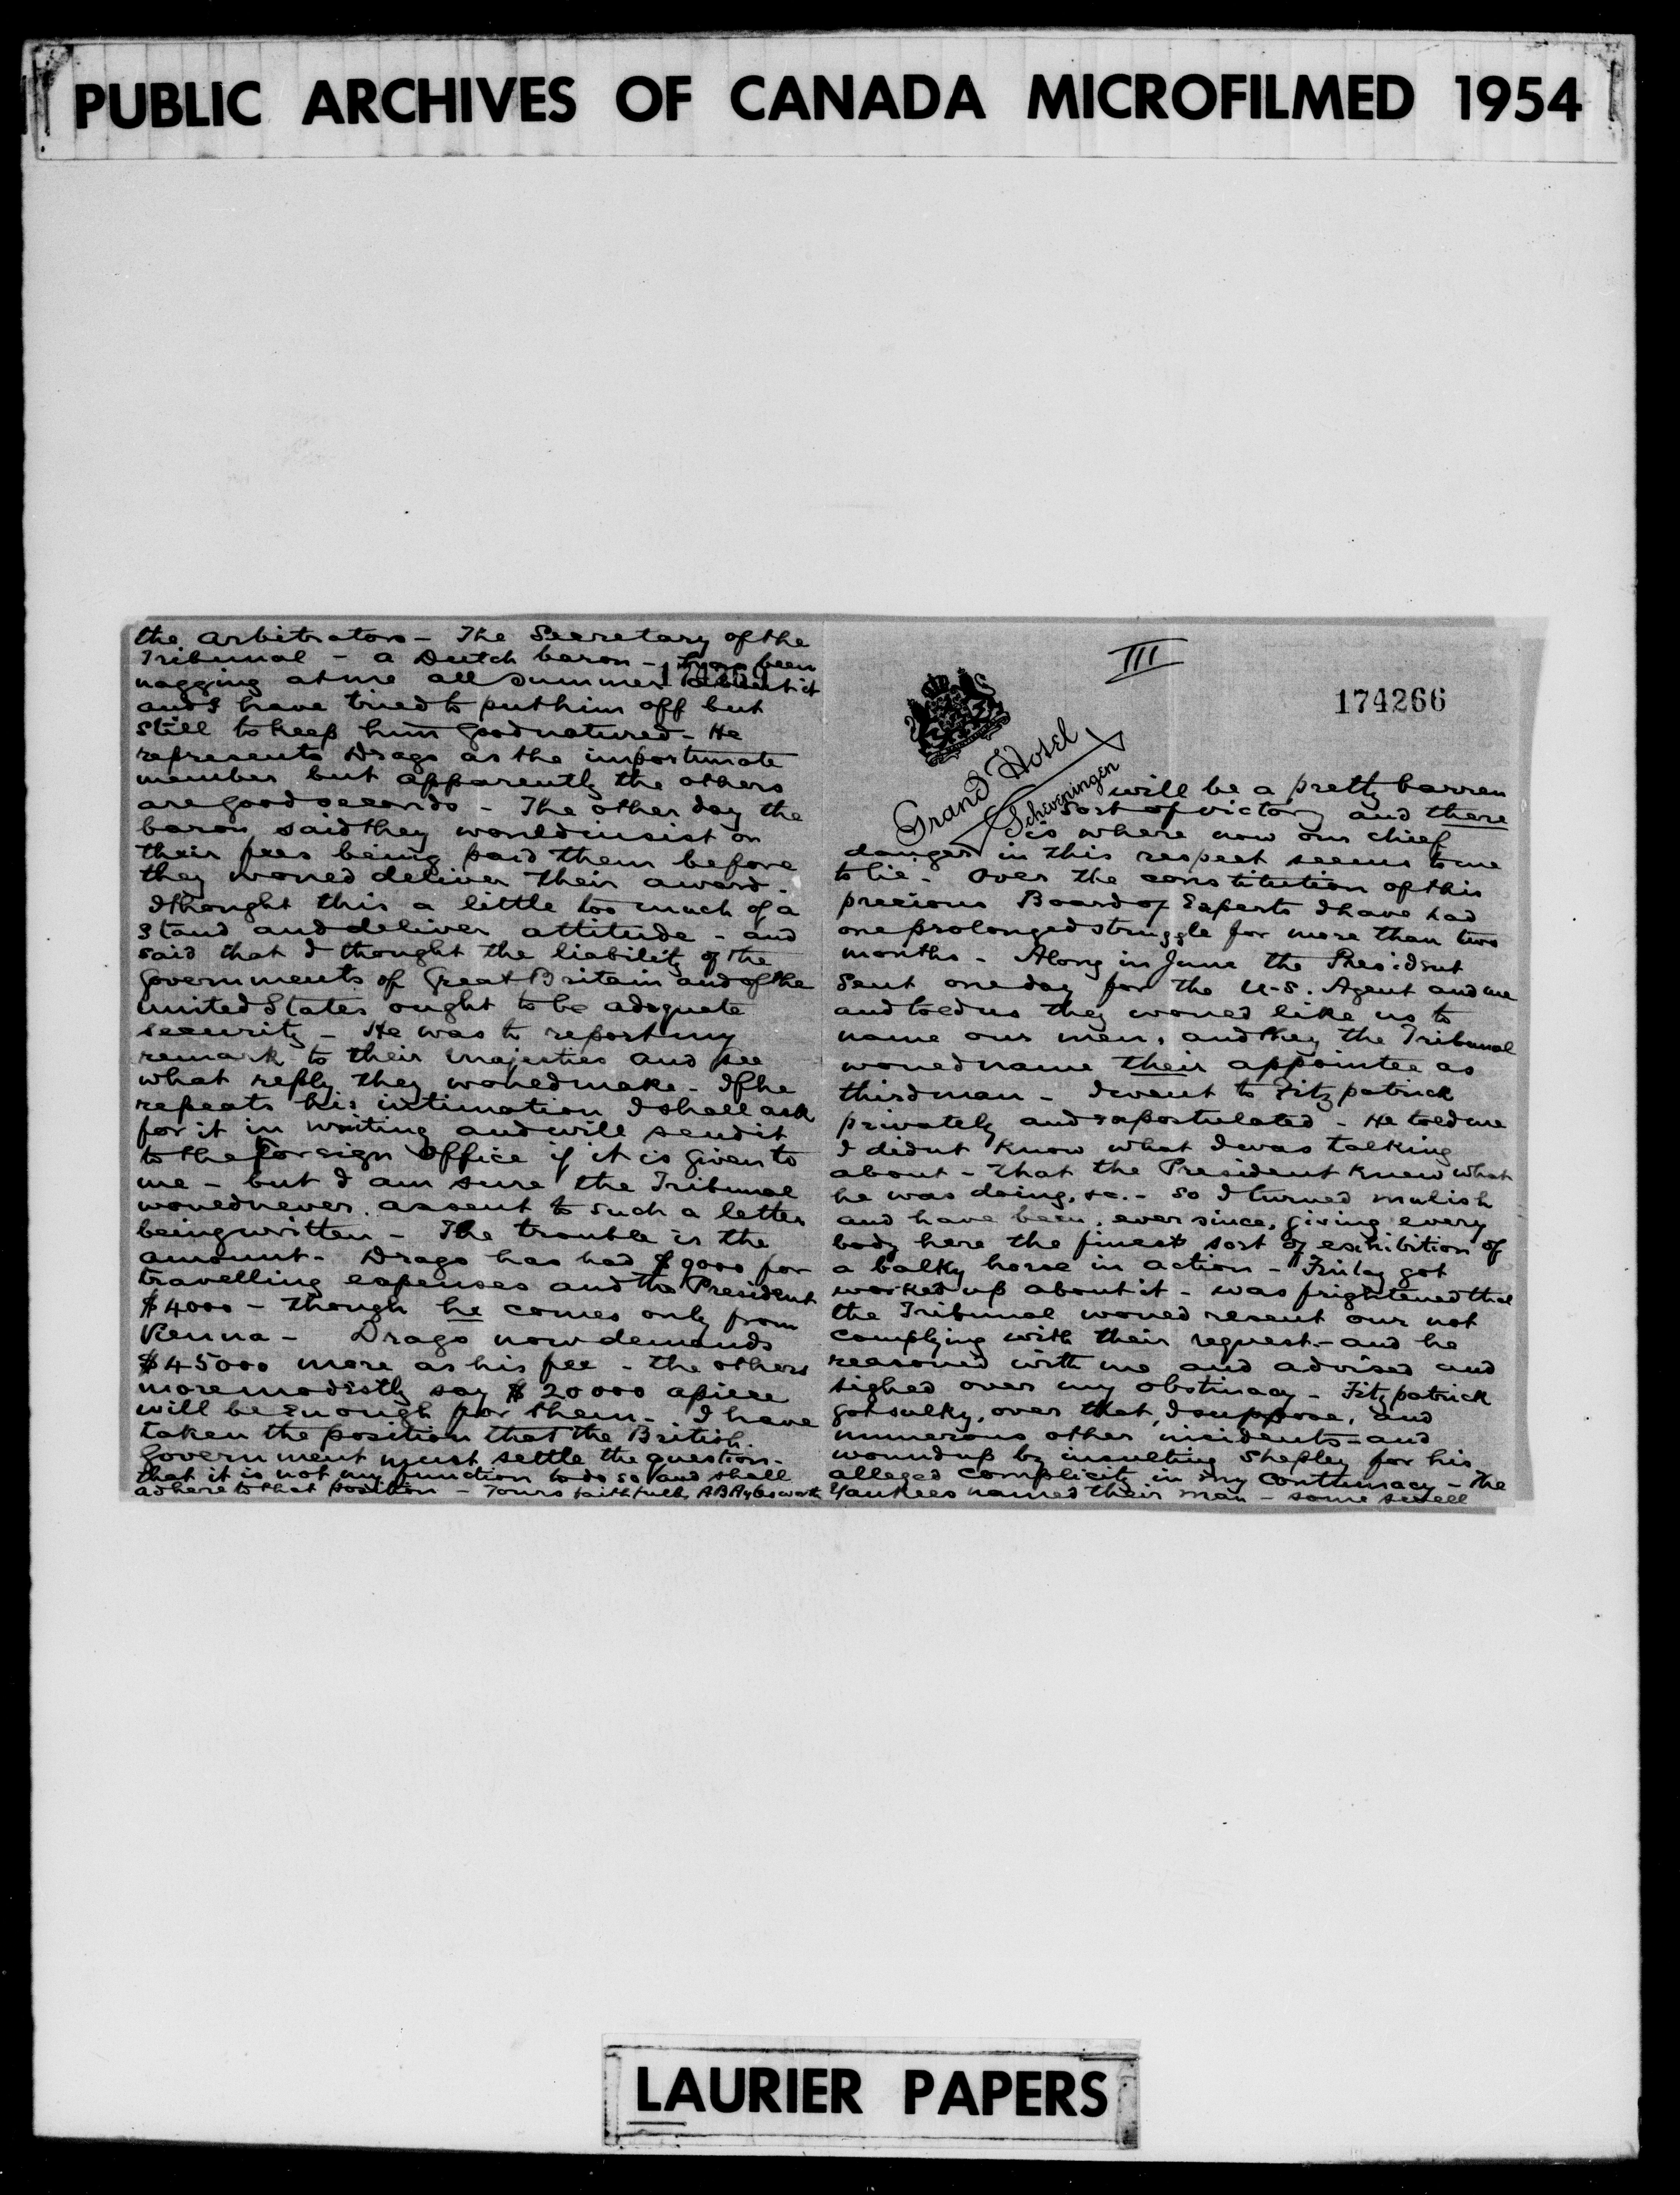 PUBLIC ARCHIVES OF CANADA MICROFILMED 1954
the Arbitrators - The Secretary of the
Tribunal - a Dutch baron - has been
nagging at me all summer about it
and I have tried to put him off but
still to keep him good natured - He
represents Drago as the importunate
member but apparently the others
are good seconds - The other day the
baron said they would insist on
their fees being paid them before
they would deliver their award -
I thought this a little too much of a
stand and deliver attitude - and
said that I thought the liability of the
Governments of Great Britain and of the
United States ought to be adequate
security - He was to report my
remark to their majesties and see
what reply they would make - If he
repeats his intimation I shall ask
for it in writing and will send it
to the Foreign Office if it is given to
me - but I am sure the Tribunal
would never assent to such a letter
being written - The trouble is the
amount - Drago has had $9000 for
travelling expenses and the President
$4000 - though he comes only from
Vienna - Drago now demands
$45000 more as his fee - the others
more modestly say $20000 apiece
will be enough for them - I have
taken the position that the British
Government must settle the question -
that it is not my function to do so and shall
adhere to that position - Yours faithfully ABAylesworth
III
174266
Grand Hotel
Scheveningen
will be a pretty barren
sort of victory and there
is where now our chief
danger in this respect seems to me
to lie - Over the constitution of this
precious Board of Experts I have had
one prolonged struggle for more than two
months - Along in June the President
sent one day for the U.S. Agent and me
and told us they would like us to
name our men, and they the Tribunal
would name their appointee as
third man - I went to Fitzpatrick
privately and expostulated - He told me
I didn't know what I was talking
about - that the President knew what
he was doing, &c. - So I turned mulish
and have been, ever since, giving every
body here the finest sort of exhibition of
a balky horse in action - Finlay got
worked up about it - was frightened that
the Tribunal would resent our not
complying with their request - and he
reasoned with me and advised and
sighed over my obstinacy - Fitzpatrick
got sulky, over that, I suppose, and
numerous other incidents - and
wound up by insulting Shepley for his
alleged complicity in my contumacy - The
Yankees named their man - some swell
LAURIER PAPERS